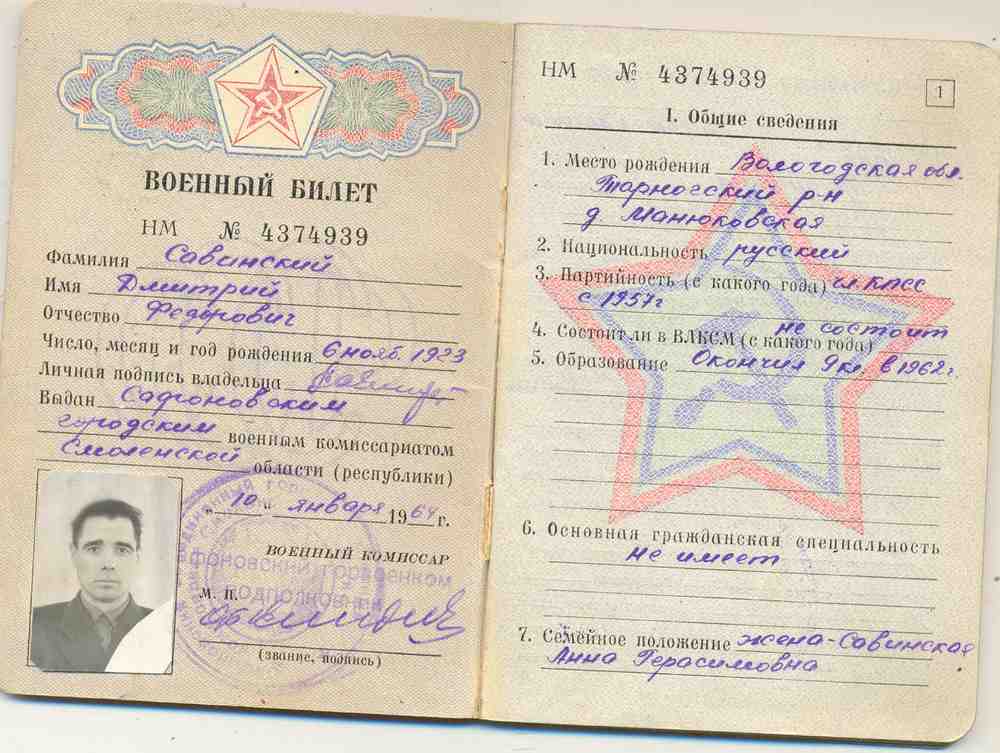 ВОЕННЫЙ БИЛЕТ
НМ № 4374939
Фамилия Савинский
Имя Дмитрий
Отчество Федорович
Число, месяц и год рождения 6 нояб. 1923
Личная подпись владельца
Выдан Сафоновским
городским военным комиссариатом
Смоленской области (республики)
„10“ января 1964 г.
ВОЕННЫЙ КОМИССАР
Сафоновский горвоенком
подполковник
М. П.
(звание, подпись)
НМ № 4374939
1
I. Общие сведения
1. Место рождения Вологодская обл.
Тарногский р-н
д. Манюковская
2. Национальность русский
3. Партийность (с какого года) чл. КПСС
с 1957г
4. Состоит ли в ВЛКСМ (с какого года) не состоит
5. Образование Окончил 9 кл. в 1962г.
6. Основная гражданская специальность
не имеет
7. Семейное положение жена-Савинская
Анна Герасимовна